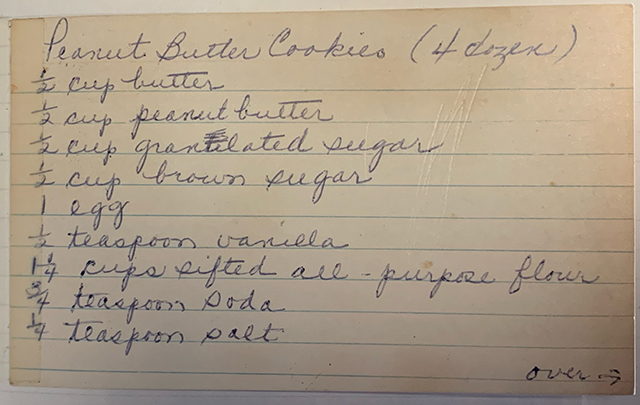 Peanut Butter Cookies (4 dozen)
½ cup butter
½ cup peanut butter
½ cup granulated sugar
½ cup brown sugar
1 egg
½ teaspoon vanilla
1¼ cups sifted all-purpose flour
¾ teaspoon soda
¼ teaspoon salt
over →